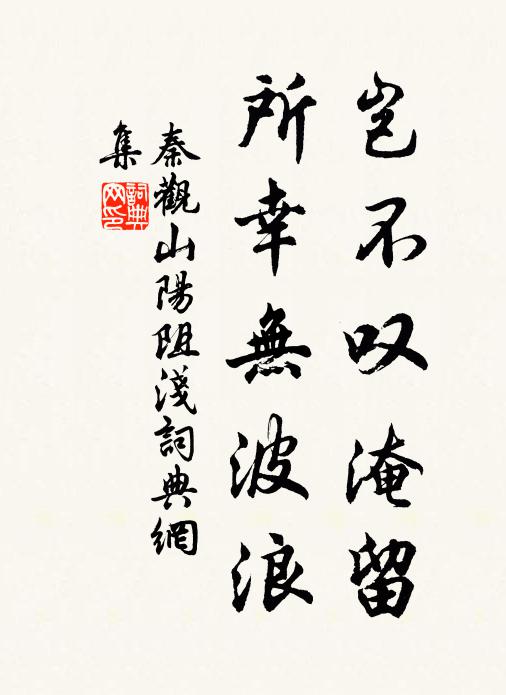 岂不叹淹留
所幸無波浪
秦觀山陽阻淺詞典網
集
詞典网印